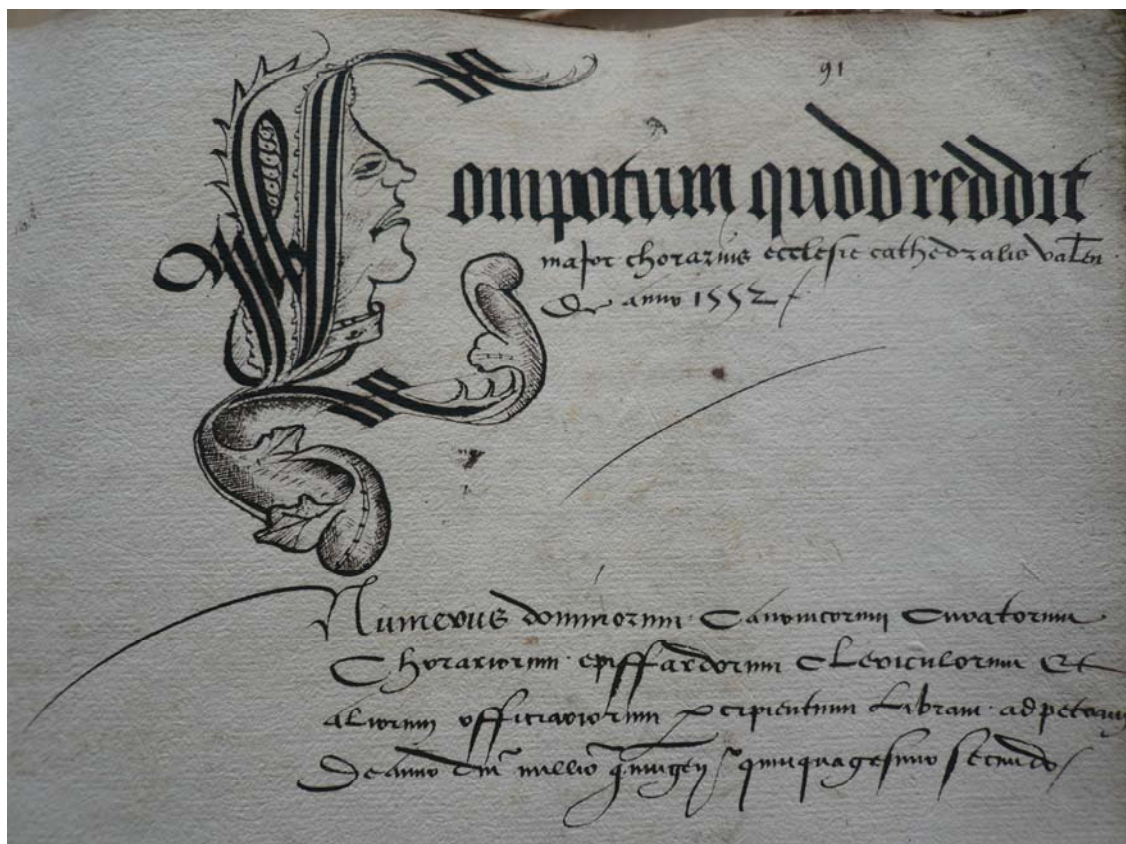 91
Compotum quod reddit
major chorarius ecclesie cathedralis Valen
de anno 1552
Numerus dominorum Canonicorum Curatorum
Chorariorum epiffardorum Clericulorum Et
aliorum officiariorum percipientium Libram
De anno dni millio quingen quinquagesimo secundo